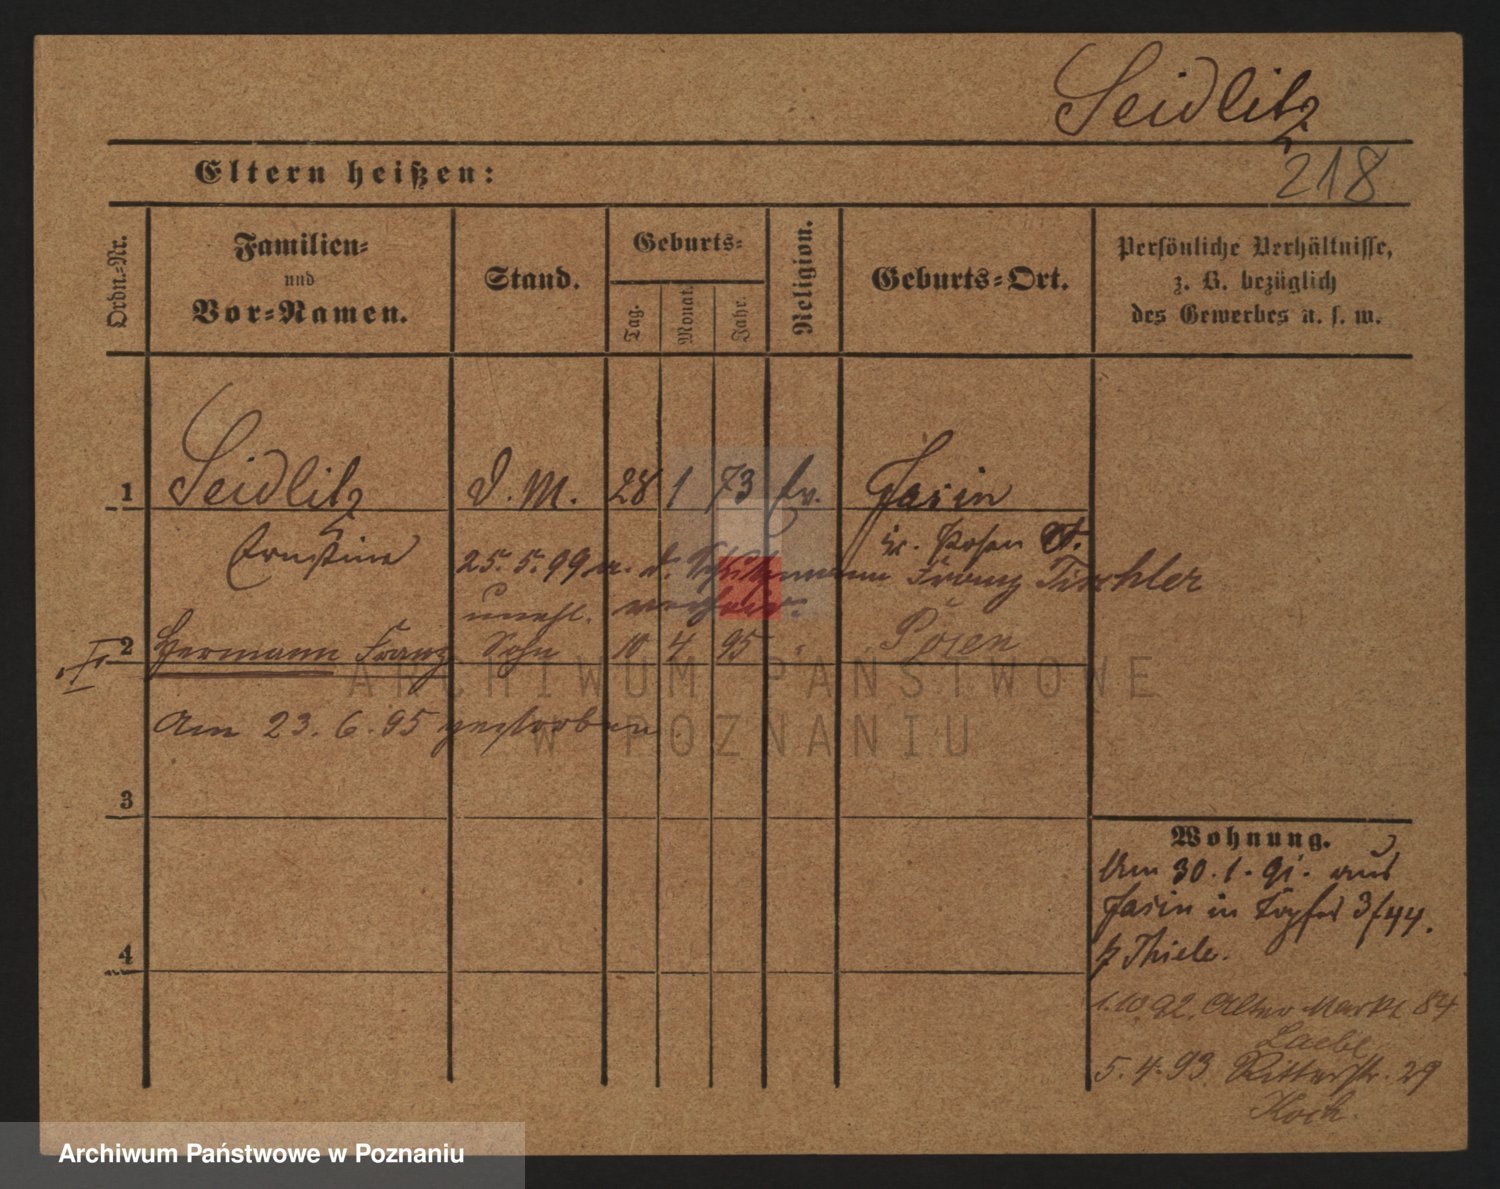 Seidlitz
218
Eltern heißen:
Ordn.-Nr.
Familien-
und
Vor-Namen.
Stand.
Geburts-
Tag.
Monat.
Jahr.
Religion.
Geburts-Ort.
Persönliche Verhältnisse,
z. B. bezüglich
des Gewerbes u. s. w.
1 Seidlitz D. M. 28 1 73 Ev. Jasin
Ernstine Kr. Posen O.
25.5.99 m. d. Schutzmann Franz Tischler
unehl. verheir.
2 Hermann Franz Sohn 10 4 95 Posen
Am 23.6.95 gestorben.
3
4
Wohnung.
Am 30.1.91. aus
Jasin in Töpfer 3/44.
b Thiele.
1.10.92. Alter Markt 84
Laebe
5.4.93 Ritterstr. 29
Koch.
ARCHIWUM PAŃSTWOWE
W POZNANIU
Archiwum Państwowe w Poznaniu